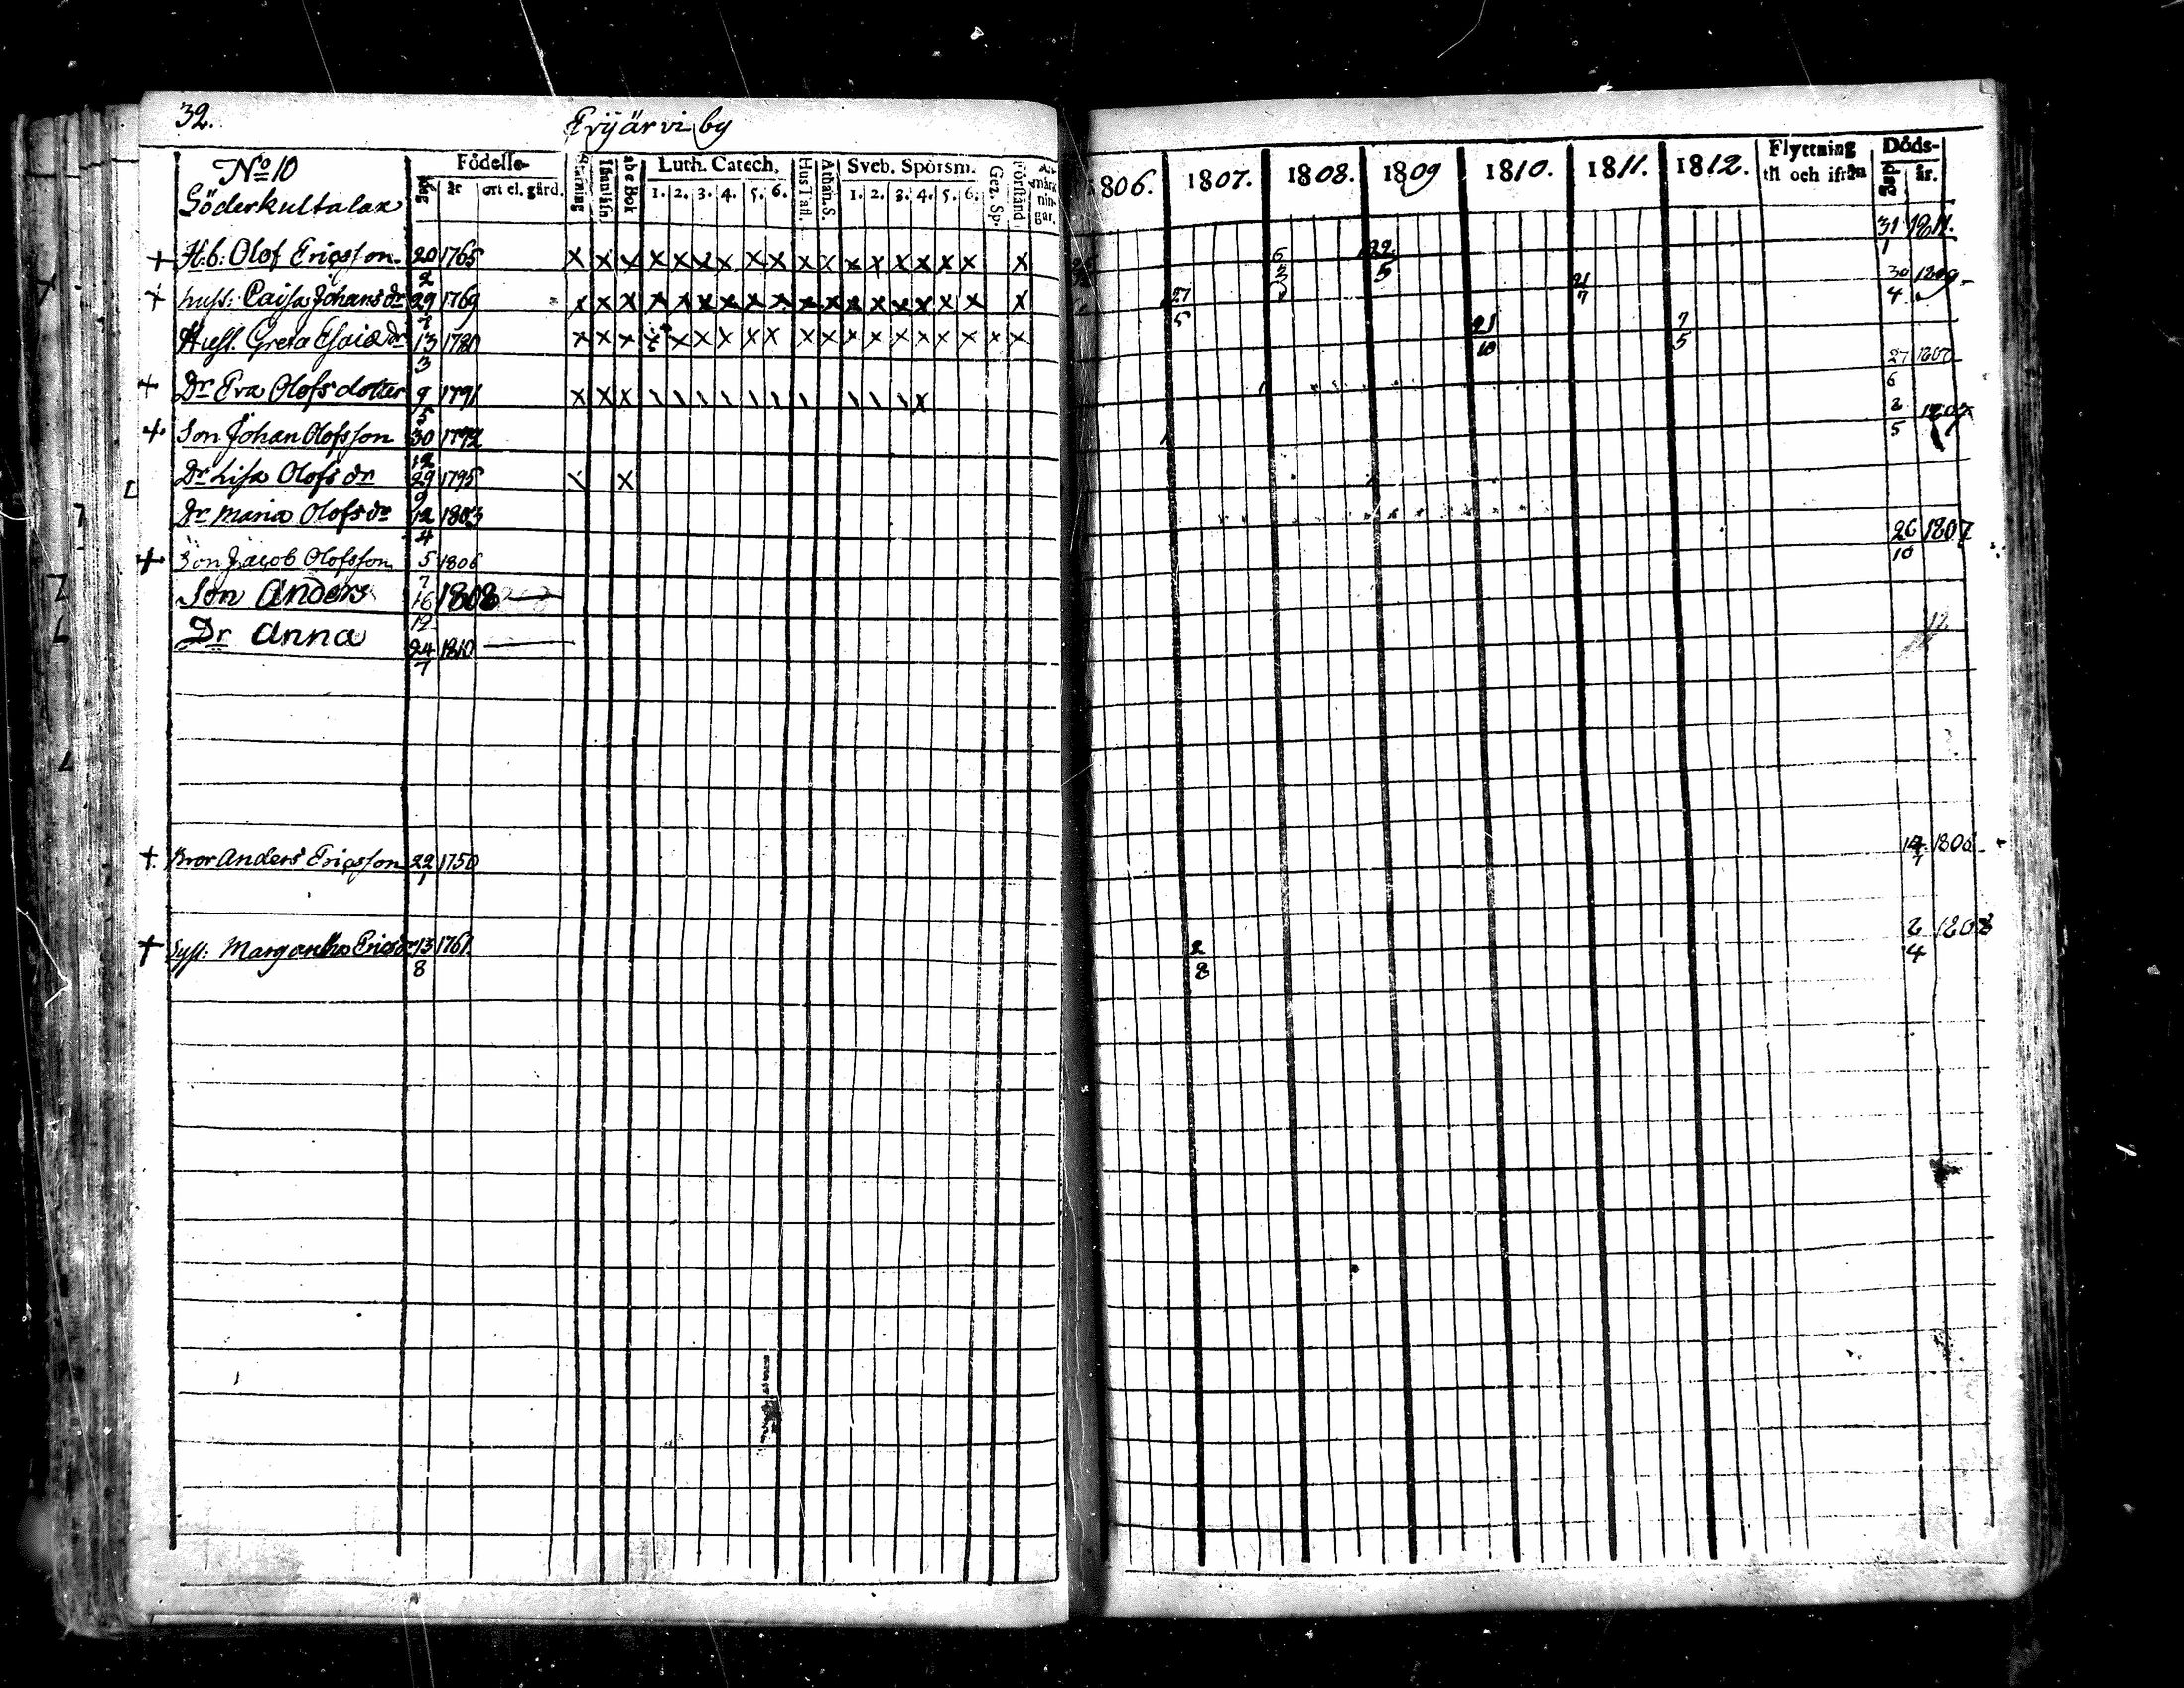 32.
Evijärvi by
No 10
Söderkultalax
Födelse-
dag år ort el. gård.
Luth. Catech.
1. 2. 3. 4. 5. 6.
Hus Tafl.
Athan. S.
Sveb. Spörsm.
1. 2. 3. 4. 5. 6.
Gez. Sp.
Förstånd
1806. 1807. 1808. 1809 1810. 1811. 1812.
Flyttning
til och ifrån
Döds-
dag år.
+ H.b: Olof Ericsson 20/2 1765 x x x x x x x x x x x x x x x x x x 6/3 22/5 31/1 1811.
+ hust: Caisa Johans dr 29 1769 x x x x x x x x x x x x x x x x x x 27/5 21/7 30/4 1809
Hust. Greta Esaiæ dr 13/3 1780 x x x x x x x x x x x x x x x x x x x 21/10 7/5
+ Dr Eva Olofs dotter 9/5 1791 x x x \ \ \ \ \ \ \ \ \ \ x 27/6 1807
+ Son Johan Olofsson 30/12 1792 2/5 1807
Dr Lisa Olofs dr 29/9 1795 x x
Dr Maria Olofs dr 12/4 1803
+ Son Jacob Olofsson 5/7 1806 26/10 1807
Son Anders 16/12 1808
Dr Anna 24/7 1810
+ Bror Anders Ericsson 22/1 1750 1806
+ Syst: Margaretha Erics dr 13/8 1761 2/8 2/4 1808